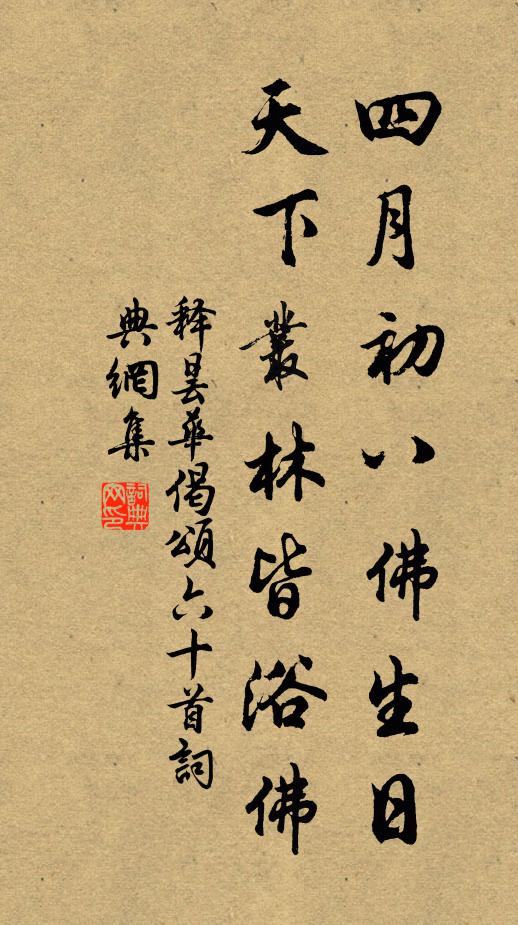 四月初八佛生日
天下叢林皆浴佛
释昙華偈頌六十首詞
典網集
詞典网印